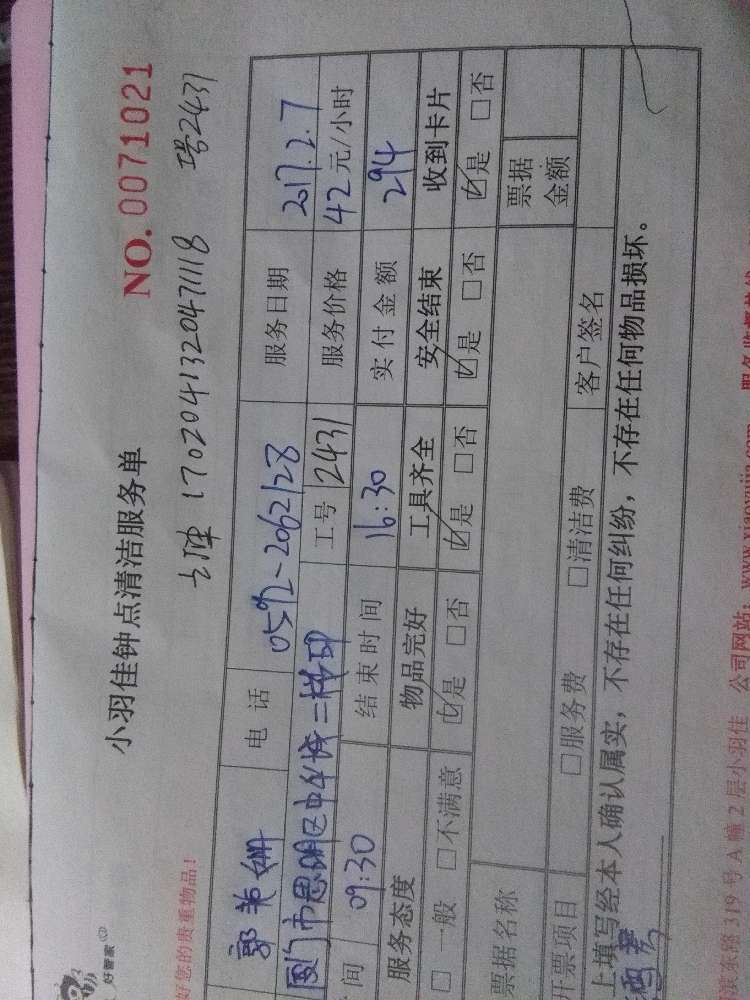 好智家
小羽佳钟点清洁服务单
NO.0071021
好您的贵重物品!
1702041320471118 2431
电话 0592-2062128 服务日期 2017.2.7
工号 2431 服务价格 42元/小时
间 09:30 结束时间 16:30 实付金额 294
服务态度 物品完好 工具齐全 安全结束 收到卡片
□一般 □不满意 ☑是 □否 ☑是 □否 ☑是 □否 ☑是 □否
票据名称 票据金额
开票项目 □服务费 □清洁费 客户签名
上填写经本人确认属实,不存在任何纠纷,不存在任何物品损坏。
滨东路319号A幢2层小羽佳 公司网站